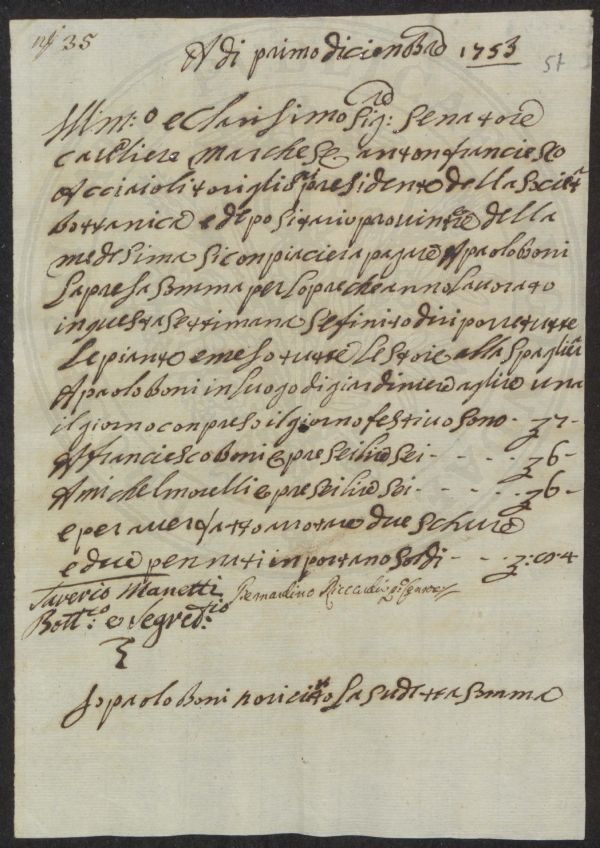 nº 35
A di primo dicienbre 1753
57
Illm:o e Clarisimo Sig:re Senatore
Cavaliere Marchese antonfranciesco
Acciaioli torigli presidente della Societa
bottanica e dipositario provinciale della
medesima si conpiaciera pagare A paolo boni
La presa somma per lopre che anno Lavorato
in questa settimana se finito di riporre tutte
Le piante e meso tutte Le stoie alla Spagliera
A paolo boni in luogo di giardiniere a lire una
il giorno conpreso il giorno festivo sono - £ 7 -
A franciesco boni opre sei lire sei - - - - £ 6 -
A michel morelli opre sei lire sei - - - - £ 6 -
e per aver fatto arotare due schure
e due pennati inportano soldi - - - £ :0 4
Saverio Manetti
Bernardino Riccardi
Bott:co e Segret:rio
Io paolo boni o ricieuto La sudetta somma